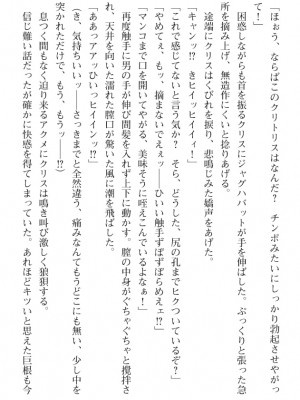 「ほぉう、ならばこのクリトリスはなんだ？　チンポみたいにしっかり勃起させやがって！」
　困惑しながらも首を振るクリスにジャグハバットが手を伸ばした。ぷっくりと張った急所を摘み上げ、無造作にくいと捻りあげる。
　途端にクリスはくびれを捩り、悲鳴じみた嬌声をあげた。
「キャンッ⁉　きヒイッヒイィ！」
「これで感じてないと言う気か？　そら、どうした、尻の孔までヒクついているぞ？」
「やめてぇ、もッ、摘まないでえぇ――ひいい触手ずぼずぼらめェッ⁉」
「マンコまで口を開いてやがる、美味そうに咥えこんでいるよなぁ！」
　再度触手に男の手が伸び間髪を入れず上下に動かす。膣の中身がぐちゃぐちゃと攪拌され、天井を向いた濡れた膣口が驚いた風に潮を飛ばした。
「ああっアアッひいっヒイィン⁉」
（き、気持ちいいッ――　さっきまでと全然違う、痛みなんてもうどこにも無い、少し中を突かれただけで、もう、もうッ――⁉）
　息つく間もなく迫り来るアクメにクリスは鳴き叫び激しく狼狽する。
　信じ難い話だったが確かに快感を得てしまっていた。あれほどキツいと思えた巨根も今